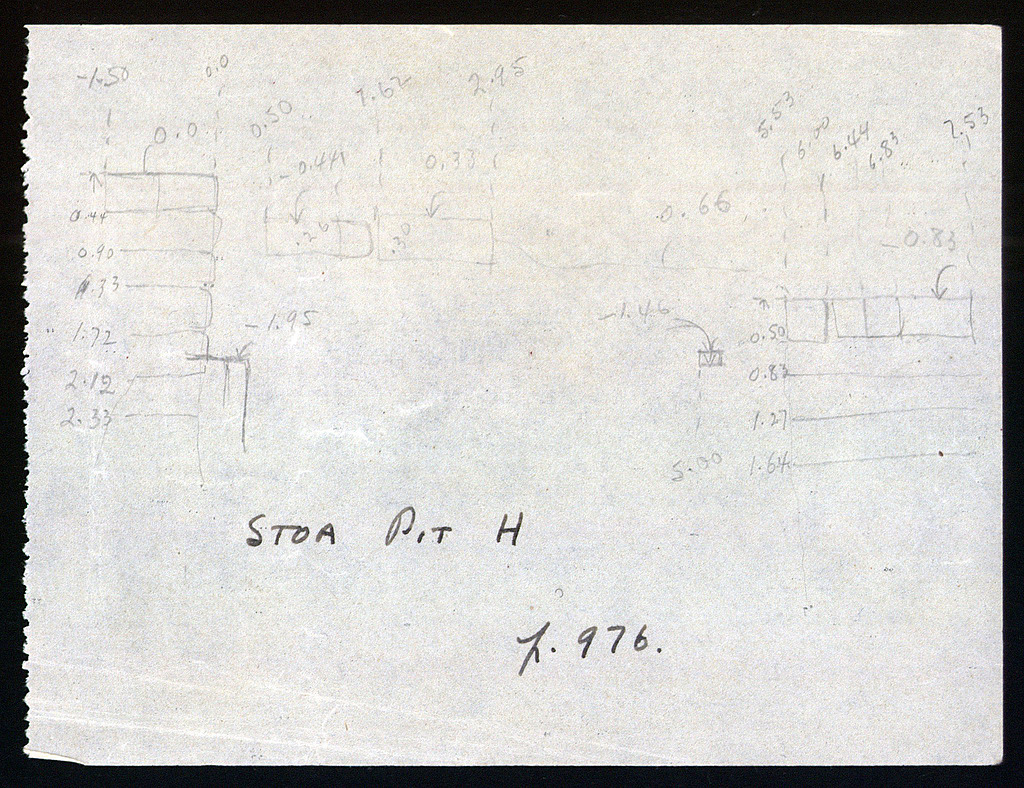 -1.50 0.0 0.50 1.62 2.95 5.53 6.00 6.44 6.83 7.53
0.0 -0.44 0.33
0.66
-0.83
0.44 .26 .30
0.90
1.33
1.72 -1.95 -1.46 0.50
2.12 0.83
2.33 1.27
5.00 1.64
STOA PIT H
p. 976.